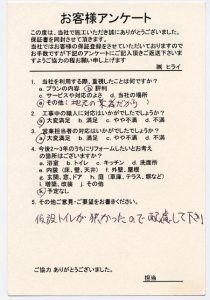 お客様アンケート
この度は、当社で施工いただき誠にありがとうございました。
保証書を同封させて頂きます。
当社ではお客様の保証登録をさせていただいておりますので
お手数ですが下記のアンケートにご記入頂きご返送下さいま
すようご協力の程お願い申し上げます
㈱ヒライ
1. 当社を利用する際、重視したことは何ですか?
a. プランの内容 b. 評判
c. サービスや対応のよさ d. 当社の場所
e. その他(地元の業者だから)
2. 工事中の職人に対応はいかがでしたでしょうか?
a. 大変満足 b. 満足 c. やや不満 d. 不満
3. 営業担当者の対応はいかがでしたでしょうか?
a. 大変満足 b. 満足 c. やや不満 d. 不満
4. 今後2~3年のうちにリフォームしたいとお考え
の箇所はございますか?
a. 浴室 b. トイレ c. キッチン d. 洗面所
e. 内装(床、壁、天井) f. 外壁、屋根
g. 玄関、窓、ドア h. 庭(車庫、テラス、塀など)
i. 増築、改装 j. その他
k. 予定なし
5. その他ご意見・ご要望をお書きください。
仮設トイレが狭かったので配慮して下さい
ご協力 ありがとうございました。
担当